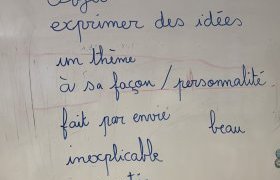 exprimer des idées
un thème
à sa façon / personnalité
fait par envie
beau
inexplicable